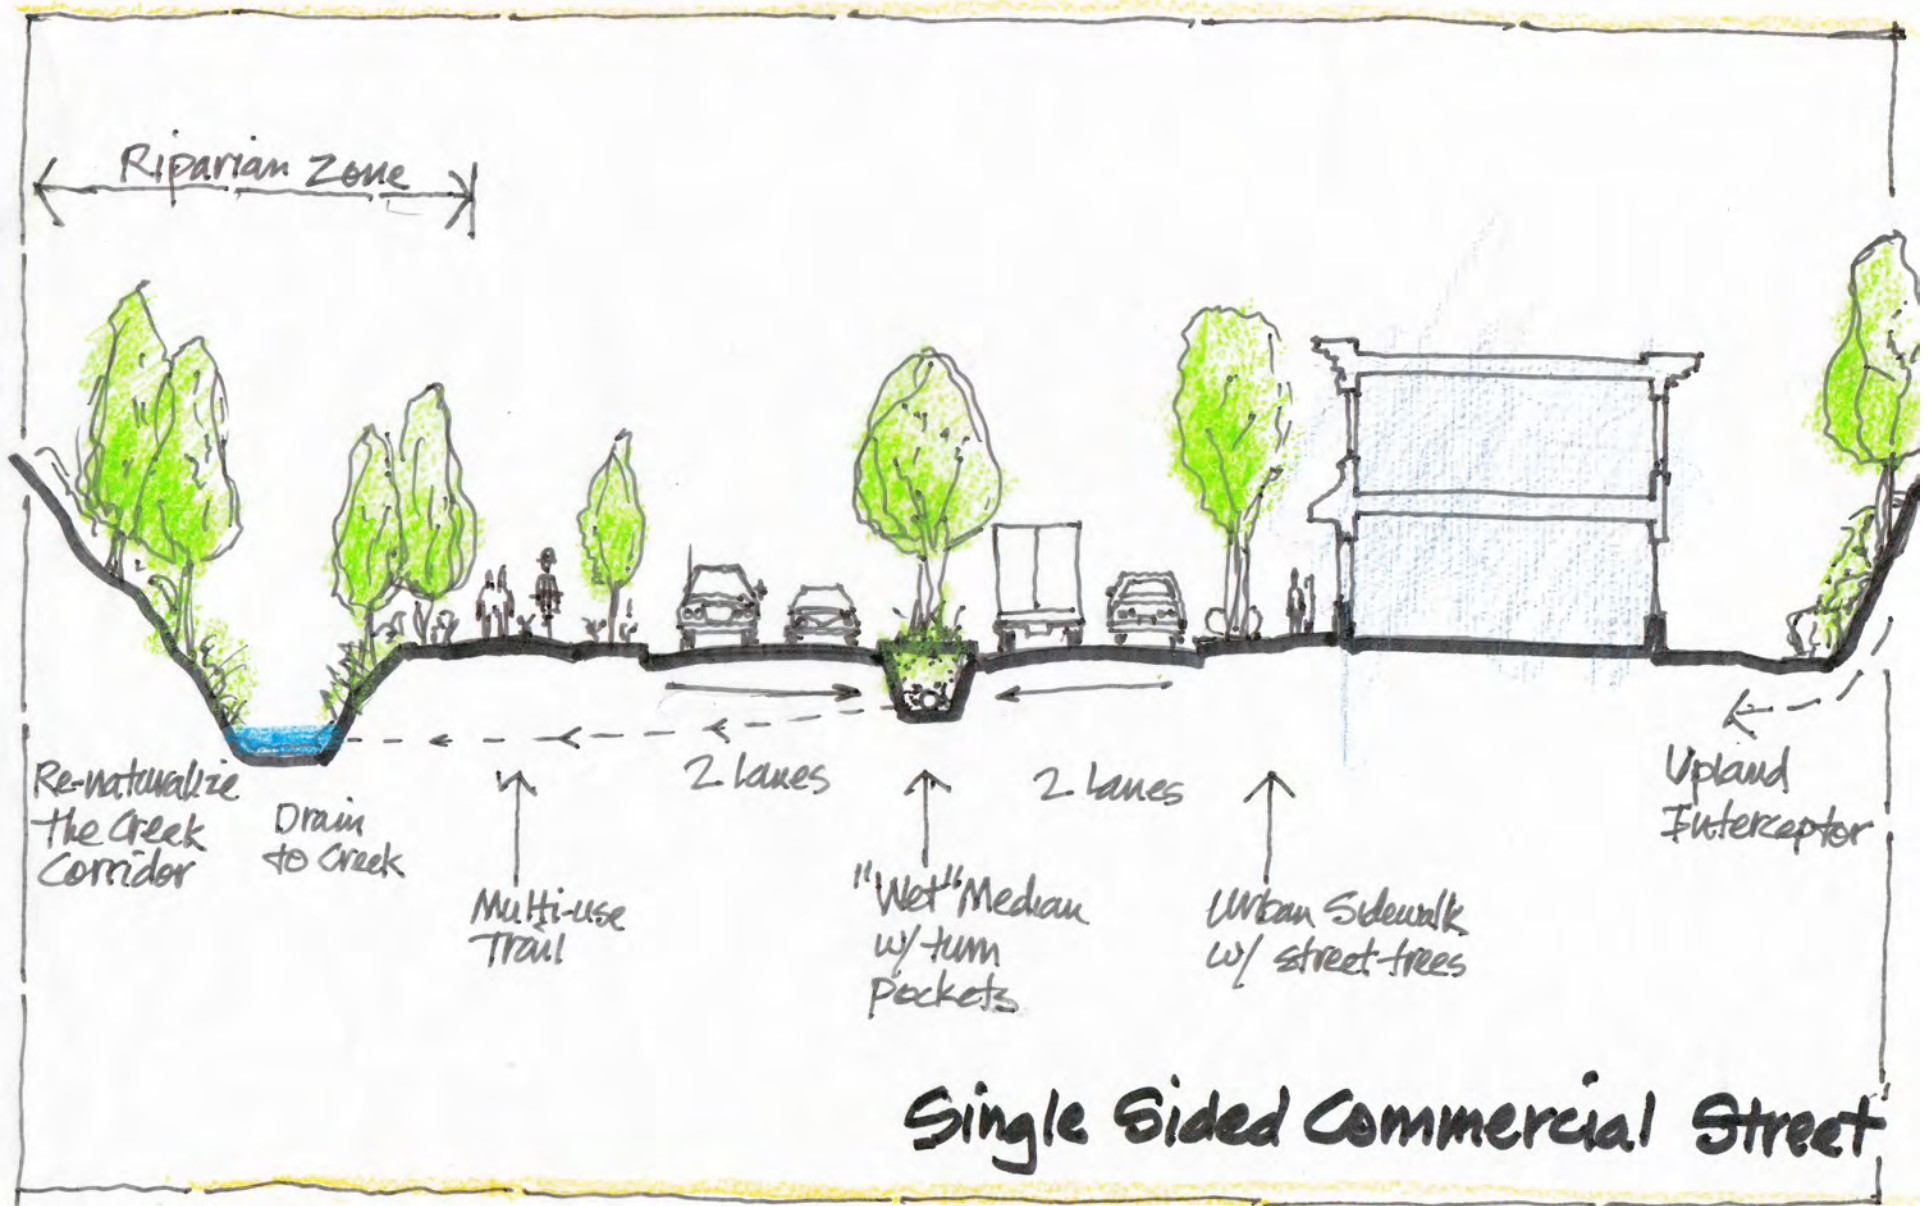 Riparian Zone
Re-naturalize
the Creek
Corridor
Drain
to Creek
Multi-use
Trail
2 Lanes
"Wet" Median
w/ turn
pockets
2 Lanes
Urban Sidewalk
w/ street trees
Upland
Interceptor
Single Sided Commercial Street